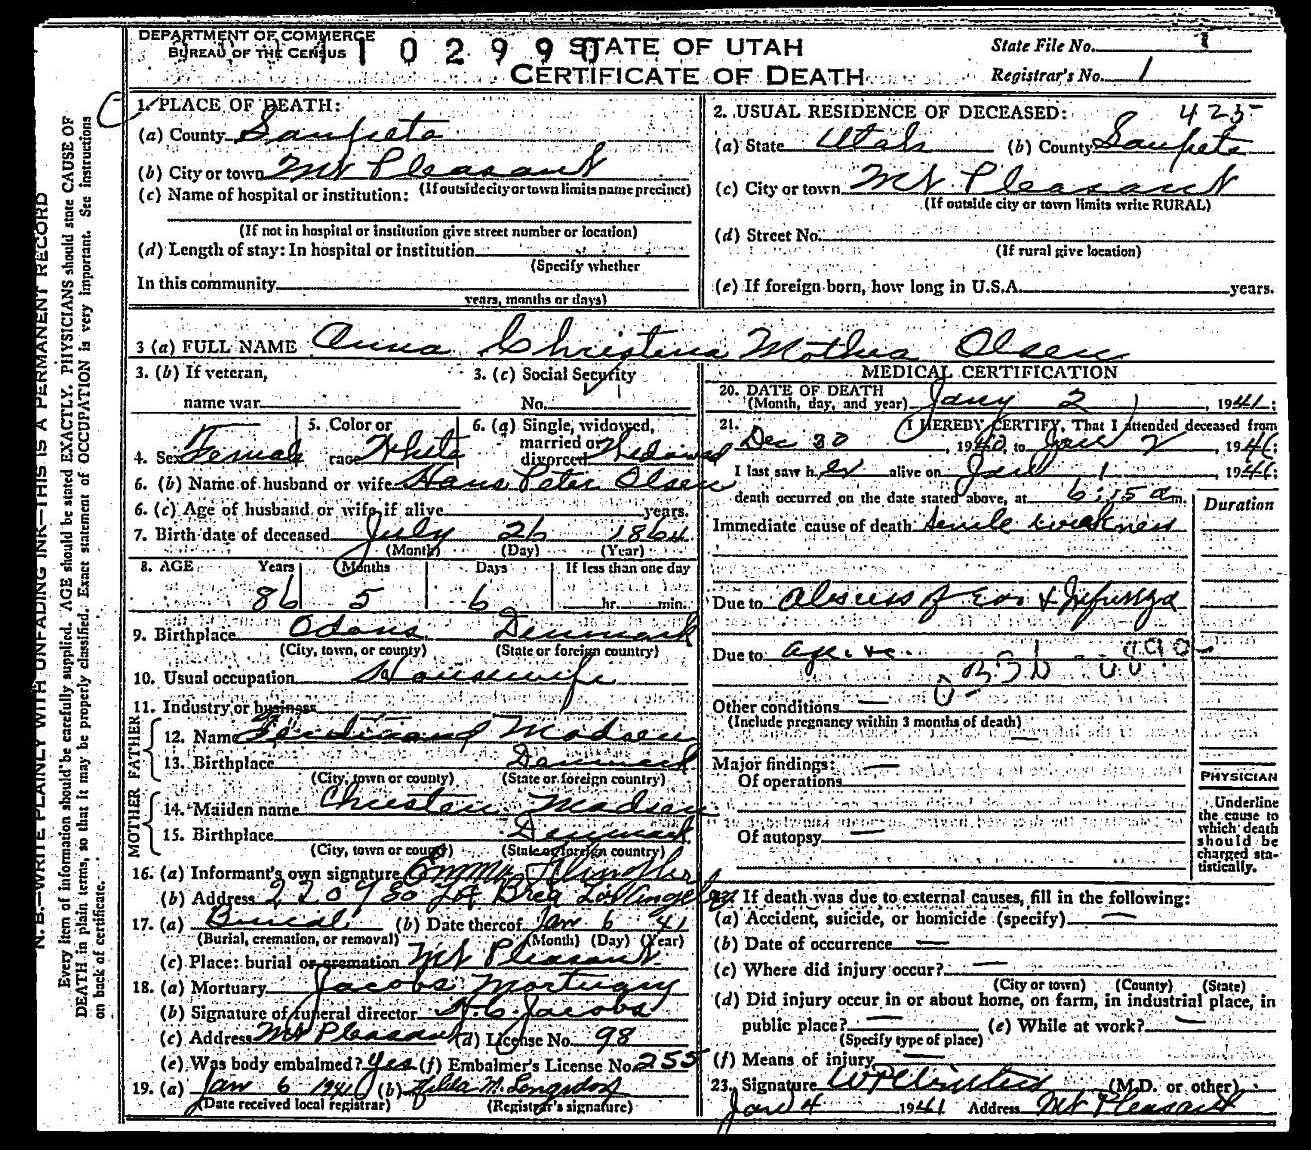 DEPARTMENT OF COMMERCE
BUREAU OF THE CENSUS
102990
STATE OF UTAH
CERTIFICATE OF DEATH
State File No. 1
Registrar's No. 1
1. PLACE OF DEATH:
(a) County Sanpete
(b) City or town Mt Pleasant
(If outside city or town limits name precinct)
(c) Name of hospital or institution:
(If not in hospital or institution give street number or location)
(d) Length of stay: In hospital or institution
(Specify whether
In this community
years, months or days)
2. USUAL RESIDENCE OF DECEASED: 425
(a) State Utah (b) County Sanpete
(c) City or town Mt Pleasant
(If outside city or town limits write RURAL)
(d) Street No.
(If rural give location)
(e) If foreign born, how long in U.S.A. years.
3 (a) FULL NAME Anna Christena Mathea Olsen
3. (b) If veteran,
name war
3. (c) Social Security
No.
4. Sex Female
5. Color or
race White
6. (a) Single, widowed,
married or
divorced Widowed
6. (b) Name of husband or wife Hans Peter Olsen
6. (c) Age of husband or wife if alive years.
7. Birth date of deceased July 26 1864
(Month) (Day) (Year)
8. AGE Years Months Days If less than one day
86 5 6 hr. min.
9. Birthplace Odens Denmark
(City, town, or county) (State or foreign country)
10. Usual occupation Housewife
11. Industry or business
FATHER
12. Name Ferdinand Madsen
13. Birthplace Denmark
(City, town or county) (State or foreign country)
MOTHER
14. Maiden name Christen Madsen
15. Birthplace Denmark
(City, town or county) (State or foreign country)
16. (a) Informant's own signature Emma
(b) Address 2209 So La Brea Los Angeles
17. (a) Burial (b) Date thereof Jan 6 41
(Burial, cremation, or removal) (Month) (Day) (Year)
(c) Place: burial or cremation Mt Pleasant
18. (a) Mortuary Jacobs Mortuary
(b) Signature of funeral director Jacobs
(c) Address Mt Pleasant (d) License No. 98
(e) Was body embalmed? Yes (f) Embalmer's License No. 255
19. (a) Jan 6 1941 (b) Hilda M. Longsdorf
(Date received local registrar) (Registrar's signature)
MEDICAL CERTIFICATION
20. DATE OF DEATH
(Month, day, and year) Jany 2, 1941;
21. I HEREBY CERTIFY, That I attended deceased from
Dec 30, 1940, to Jan 2, 1941;
I last saw her alive on Jan 1, 1941;
death occurred on the date stated above, at 6:15 a m.
Duration
Immediate cause of death Senile weakness
Due to Abscess of Ear & Influenza
Due to Age. etc.
Other conditions —
(Include pregnancy within 3 months of death)
Major findings: —
Of operations
Of autopsy —
PHYSICIAN
Underline
the cause to
which death
should be
charged sta-
tistically.
22. If death was due to external causes, fill in the following:
(a) Accident, suicide, or homicide (specify) —
(b) Date of occurrence —
(c) Where did injury occur? —
(City or town) (County) (State)
(d) Did injury occur in or about home, on farm, in industrial place, in
public place? — (e) While at work? —
(Specify type of place)
(f) Means of injury —
23. Signature (M.D. or other)
Jan 4 1941 Address Mt Pleasant
N. B.—WRITE PLAINLY WITH UNFADING INK—THIS IS A PERMANENT RECORD
Every item of information should be carefully supplied. AGE should be stated EXACTLY. PHYSICIANS should state CAUSE OF
DEATH in plain terms, so that it may be properly classified. Exact statement of OCCUPATION is very important. See instructions
on back of certificate.